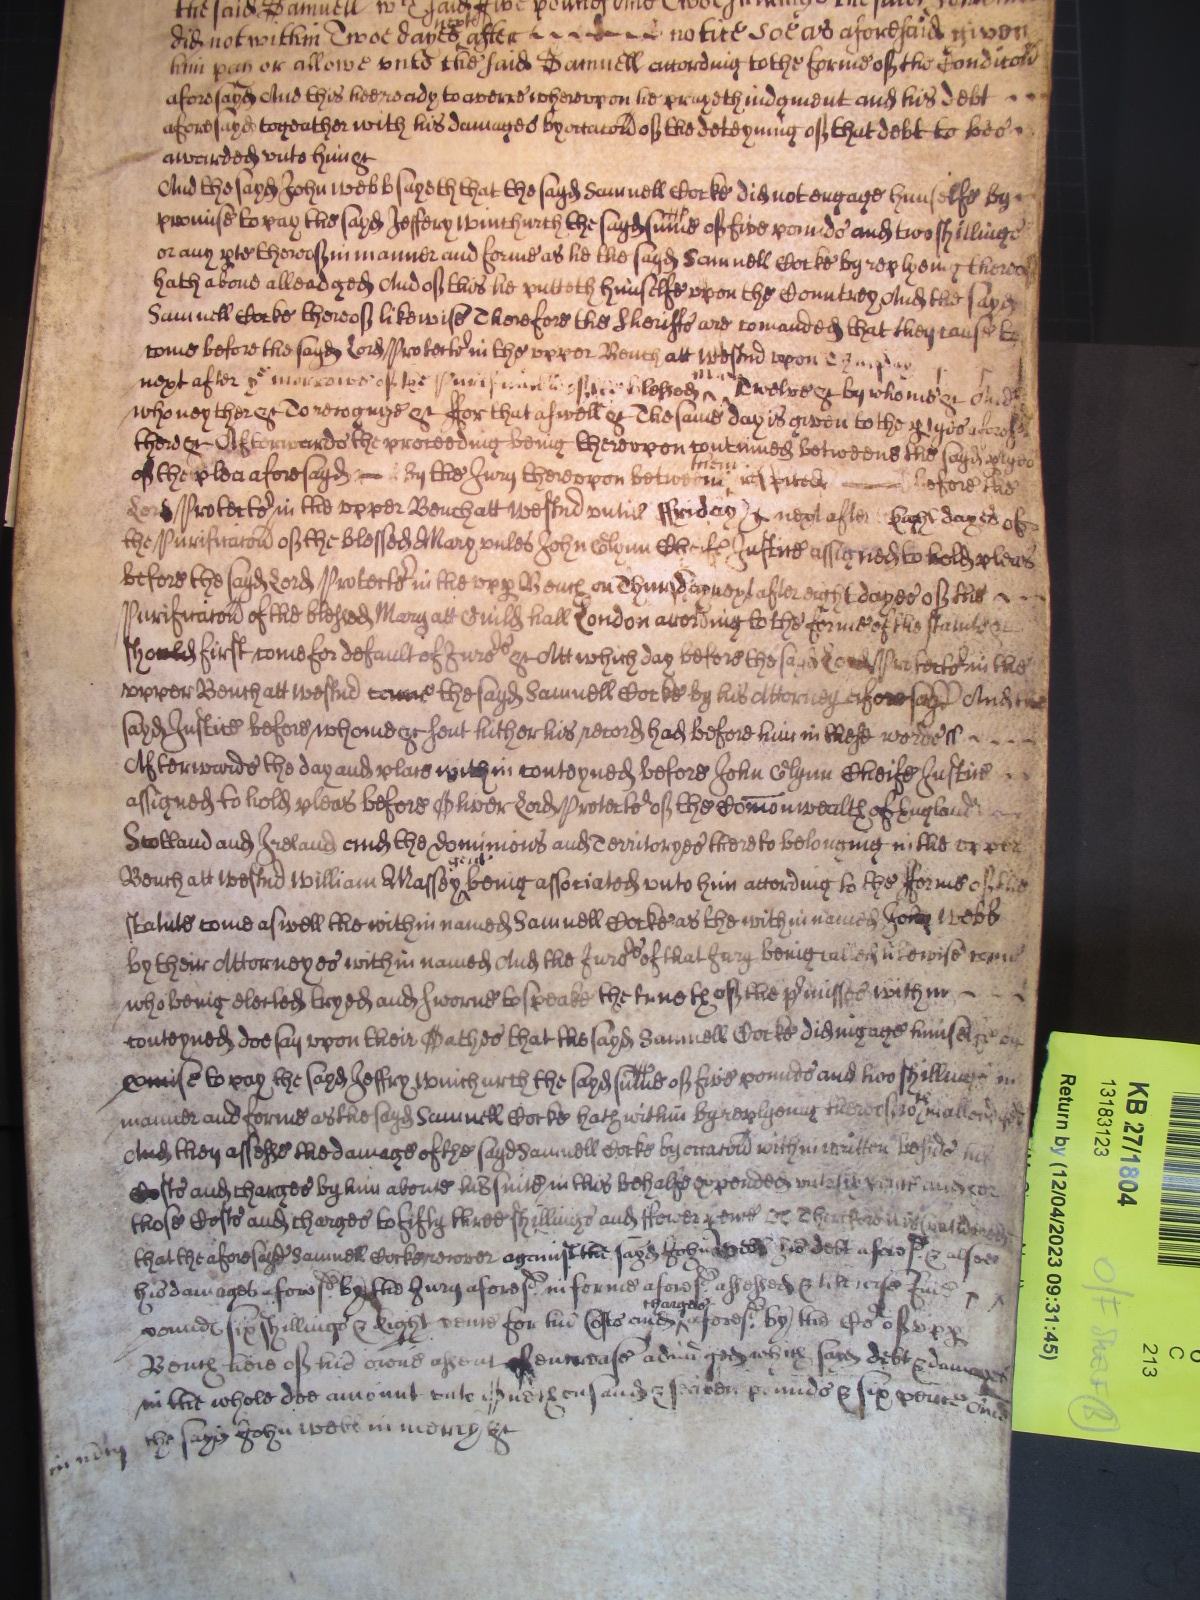 the said Samuell
did not within Twoe dayes next after notice soe as aforesaid given
him pay or allowe unto the said Samuell according to the forme of the Condicon
aforesayd And this hee ready to averre whereupon he prayeth iudgment and his debt
aforesayd togeather with his damages by occacon of the deteyning of that debt to bee
awarded unto him &c
And the sayd John Webb sayeth that the sayd Samuell Cocke did not engage himselfe by
promise to pay the sayd Jeffery Winchurch the sayd summe of five pounds and two shillings
or any pte thereof in manner and forme as he the sayd Samuell Cocke by replyeing thereof
hath above alleadged And of this he putteth himselfe upon the Countrey And the sayd
Samuell Cocke thereof likewise Therefore the Sheriffs are comanded that they cause to
come before the sayd Lord Protector in the upper Bench att Westmr upon Thursday
next after ye morrowe of the Purificacon of the blessed Mary Twelve &c by whome &c And
who neyther &c To recognize &c For that aswell &c The same day is given to the ptyes aforesd
there &c Afterwards the proceeding being thereupon continued betweene the sayd ptyes
of the plea aforesayd By the Jury thereupon between them respited before the
Lord Protector in the upper Bench att Westmr untill Friday next after Eight dayes of
the Purificacon of the blessed Mary unles John Glynn Cheife Justice assigned to hold pleas
before the sayd Lord Protector in the upp Bench on Thursday next after eight dayes of the
Purificacon of the blessed Mary att Guild hall London according to the forme of the statute &c
should first come for default of Jurors &c Att which day before the sayd Lord Protector in the
upper Bench att Westmr came the sayd Samuell Cocke by his Attorney aforesayd And the
sayd Justice before whome &c sent hither his record had before him in these words ss
Afterwards the day and place within conteyned before John Glynn Cheife Justice
assigned to hold pleas before Oliver Lord Protector of the Comonwealth of England
Scotland and Ireland and the dominions and Territoryes thereto belonging in the upper
Bench att Westmr William Massey gent being associated unto him according to the forme of the
statute come aswell the within named Samuell Cocke as the within named John Webb
by their Attorneyes within named And the Jurors of that Jury being called likewise come
who being elected tryed and sworne to speake the trueth of the pmisses within
conteyned doe say upon their Oathes that the sayd Samuell Cocke did ingage himselfe by
pmise to pay the sayd Jeffry Winchurch the sayd summe of five pounds and two shillings in
manner and forme as the sayd Samuell Cocke hath within by replyeing thereof to him alleadged
And they assesse the damage of the sayd Samuell Cocke by occacon within written beside his
Costs and charges by him aboute his suite in this behalfe expended unto six pence and for
those Costs and charges to fifty three shillings and fower pence &c Therefore it is considered
that the aforesayd Samuell Cocke recover against the sayd John Webb his debt aforesd & alsoe
his damages aforesd by the Jury aforesd in forme aforesd assessed & likewise
pounds six shillings & Eight pence for his Costs and charges aforesd by the Cort of upp
Bench here of his owne assent of encrease adiudged which sayd debt & damages
in the whole doe amount unto pounds & six pence And
the sayd John Webb in mercy &c
in mercy
KB 27/1804
13183123
Return by (12/04/2023 09:31:45)
C
213